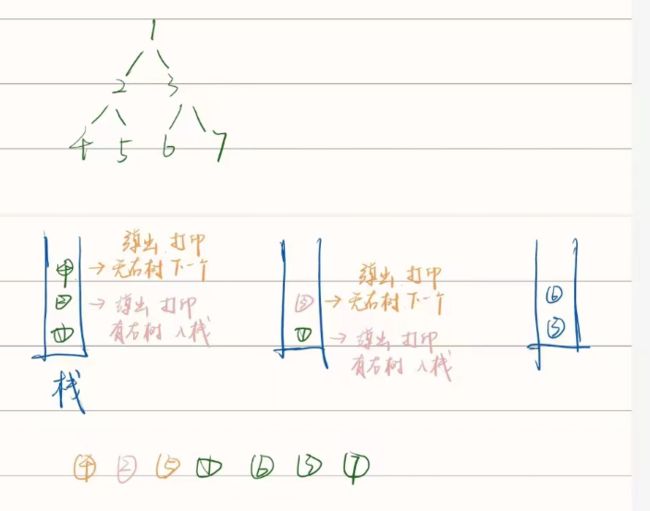 1
2 3
4 5 6 7
弹出 打印
④ → 无右树 下一个
② → 弹出 打印
有右树 入栈
①
弹出 打印
⑤ → 无右树 下一个
① → 弹出 打印
有右树 入栈
⑥
③
栈
④ ② ⑤ ① ⑥ ③ ⑦